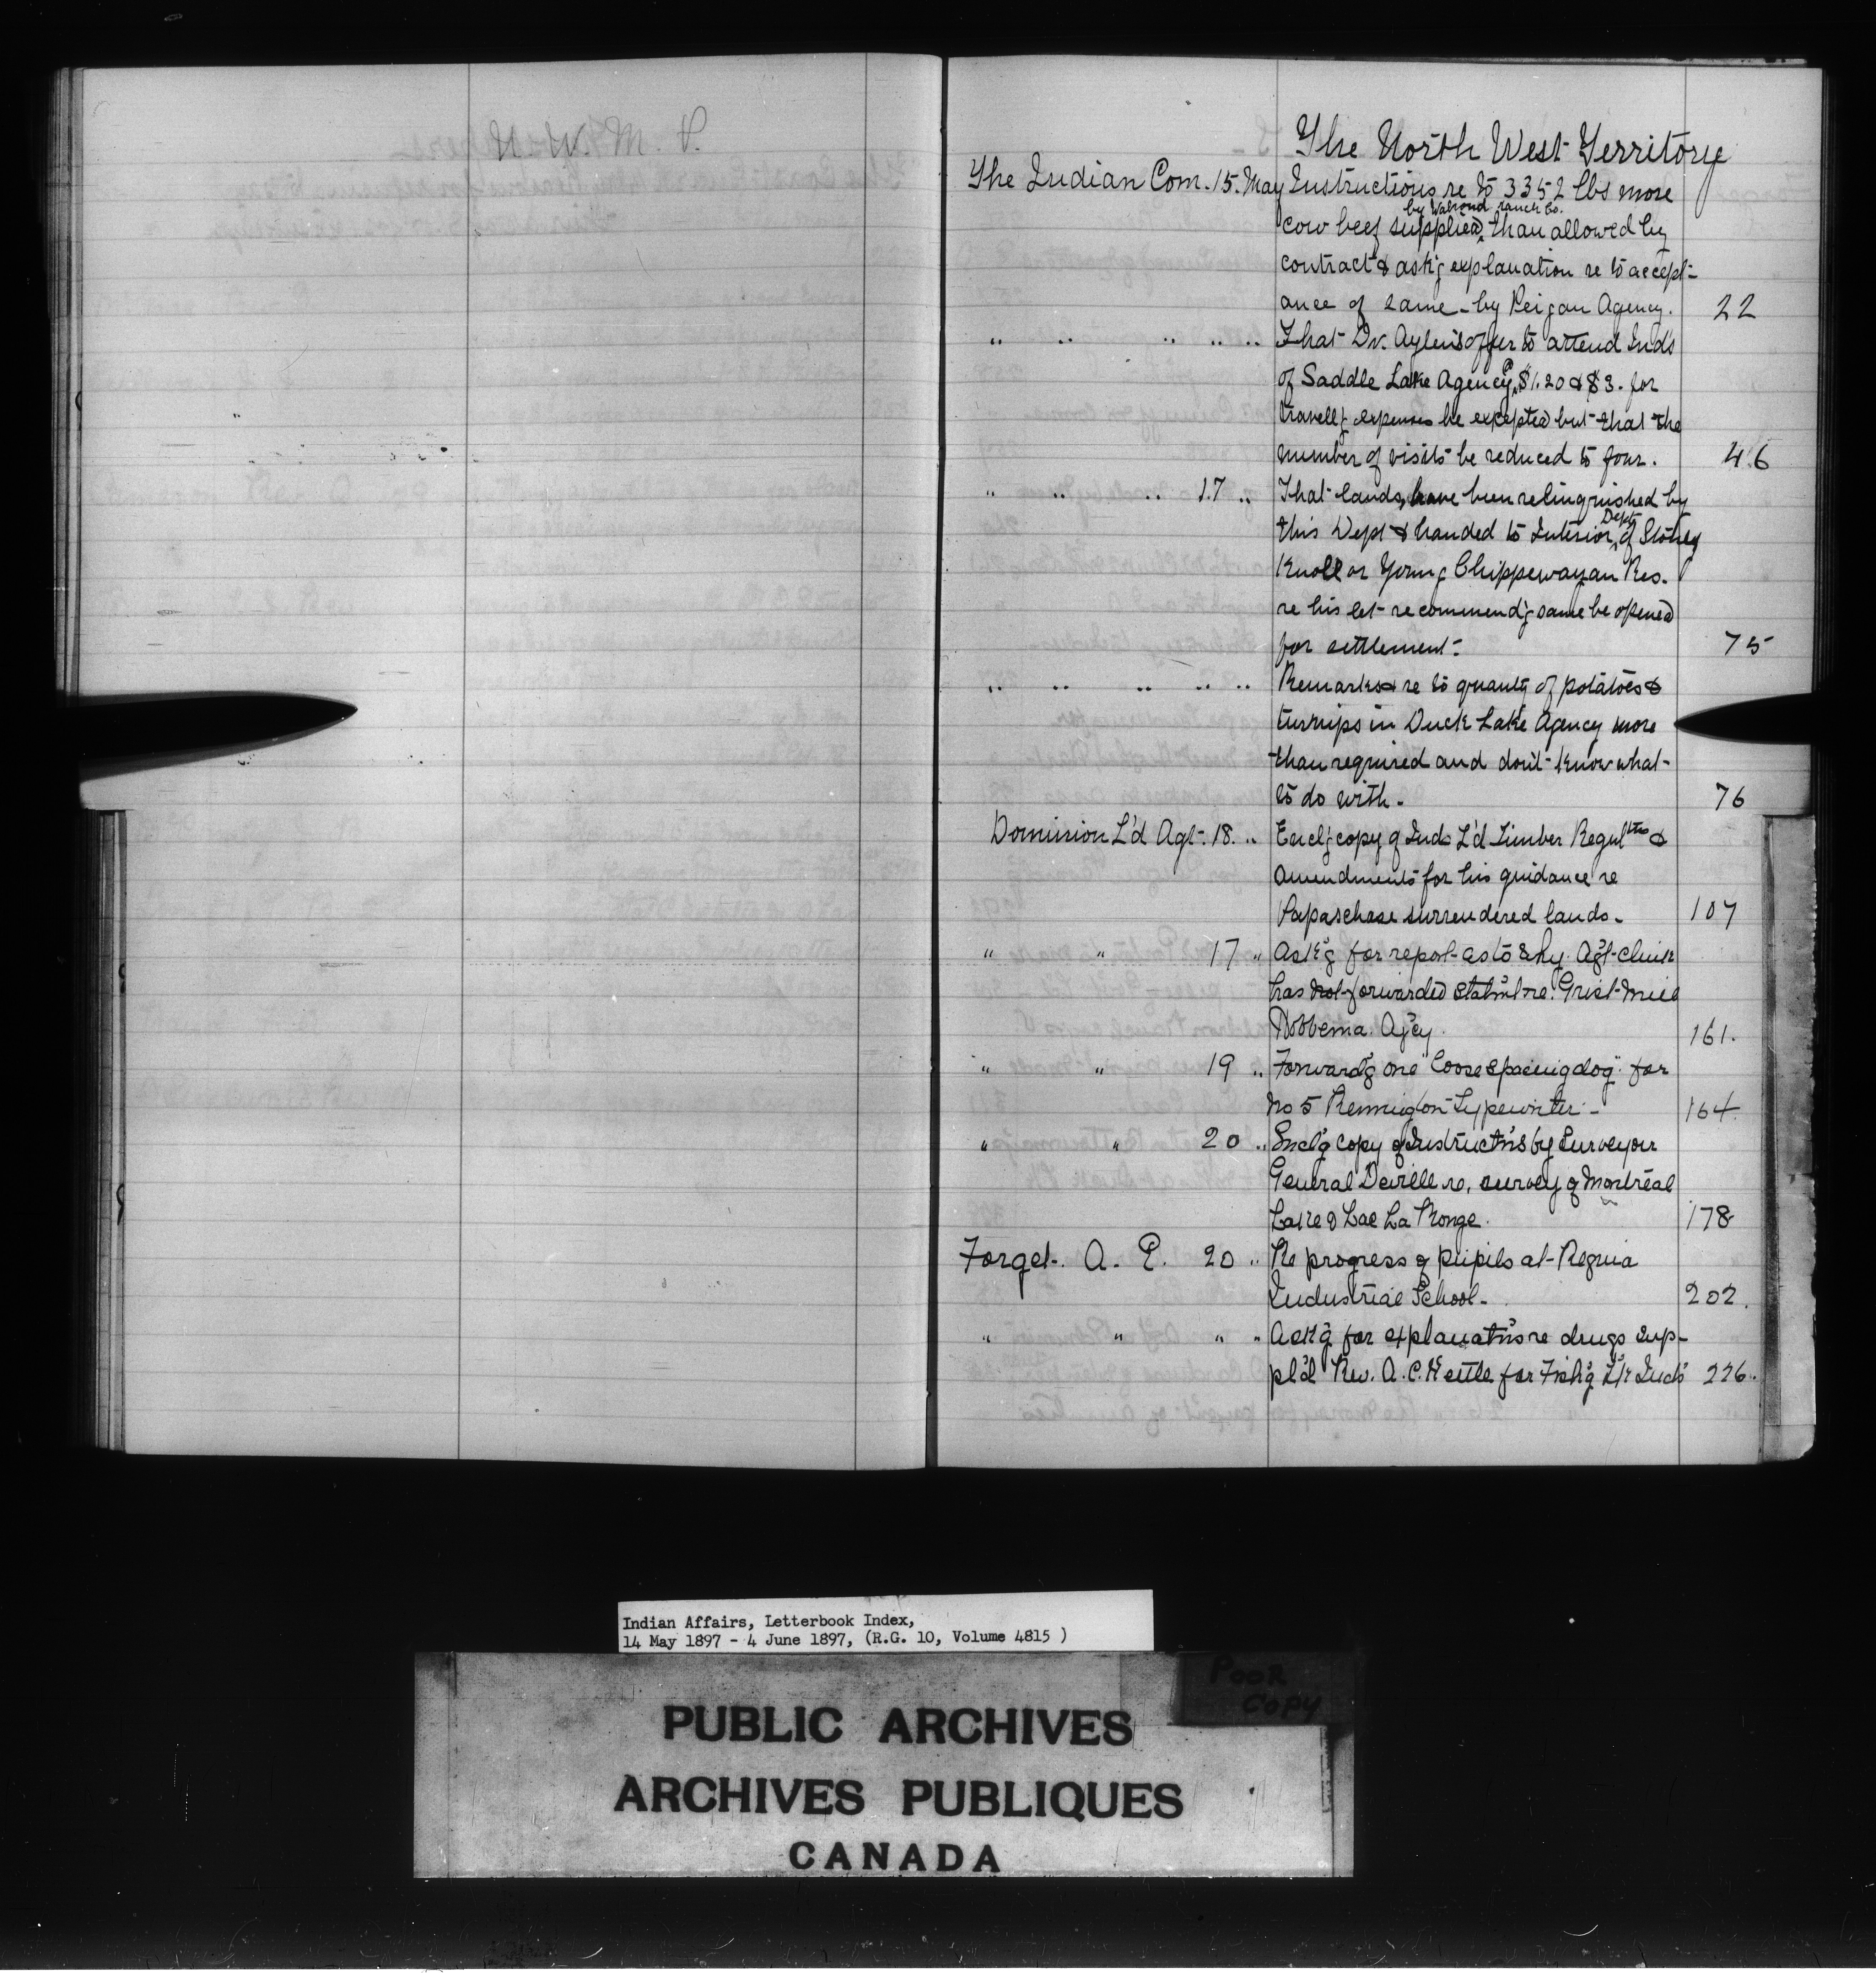 N. W. M. P.
The North West Territory
The Indian Com. 15. May Instructions re to 3352 lbs more
by Walrond ranch Co.
cow beef supplied, than allowed by
contract & ask'g explanation re to accept-
ance of same - by Peigan Agency. 22
" " " " " That Dr. Aylen's offer to attend Inds
of Saddle Lake Agency @ $1.20 & $3. for
travell'g expenses be excepted but that the
number of visits be reduced to four. 46
" " " 17 " That lands, have been relinquished by
this Dept & handed to Interior Dept, of Stoney
Knoll or Young Chippewayan Res.
re his let recommend'g same be opened
for settlement. 75
" " " " " Remarks re to quanty of potatoes &
turnips in Duck Lake Agency more
than required and don't know what
to do with. 76
Dominion L'd Agt. 18. " Encl'g copy of Inds L'd Timber Regultns &
Amendments for his guidance re
Papaschase surrendered lands. 107
" " 17 " Ask'g for report as to why Agt Clink
has not forwarded Statm't re. Grist Mill
Hobbema Ag'cy. 161.
" " 19 " Forward'g one "loose spacing dog" for
No 5 Remington Typewriter - 164
" " 20 " Encl'g copy of Instructns by Surveyor
General Deville re, survey of Montreal
Lake & Lac La Ronge. 178
Forget. A. E. 20 " Re progress of pupils at Regina
Industrial School - 202.
" " " " Ask'g for explanatns re drugs sup-
pl'd Rev. A. C. Nettle for Fish'g L'k Inds 226.
Indian Affairs, Letterbook Index,
14 May 1897 - 4 June 1897, (R.G. 10, Volume 4815 )
POOR
COPY
PUBLIC ARCHIVES
ARCHIVES PUBLIQUES
CANADA